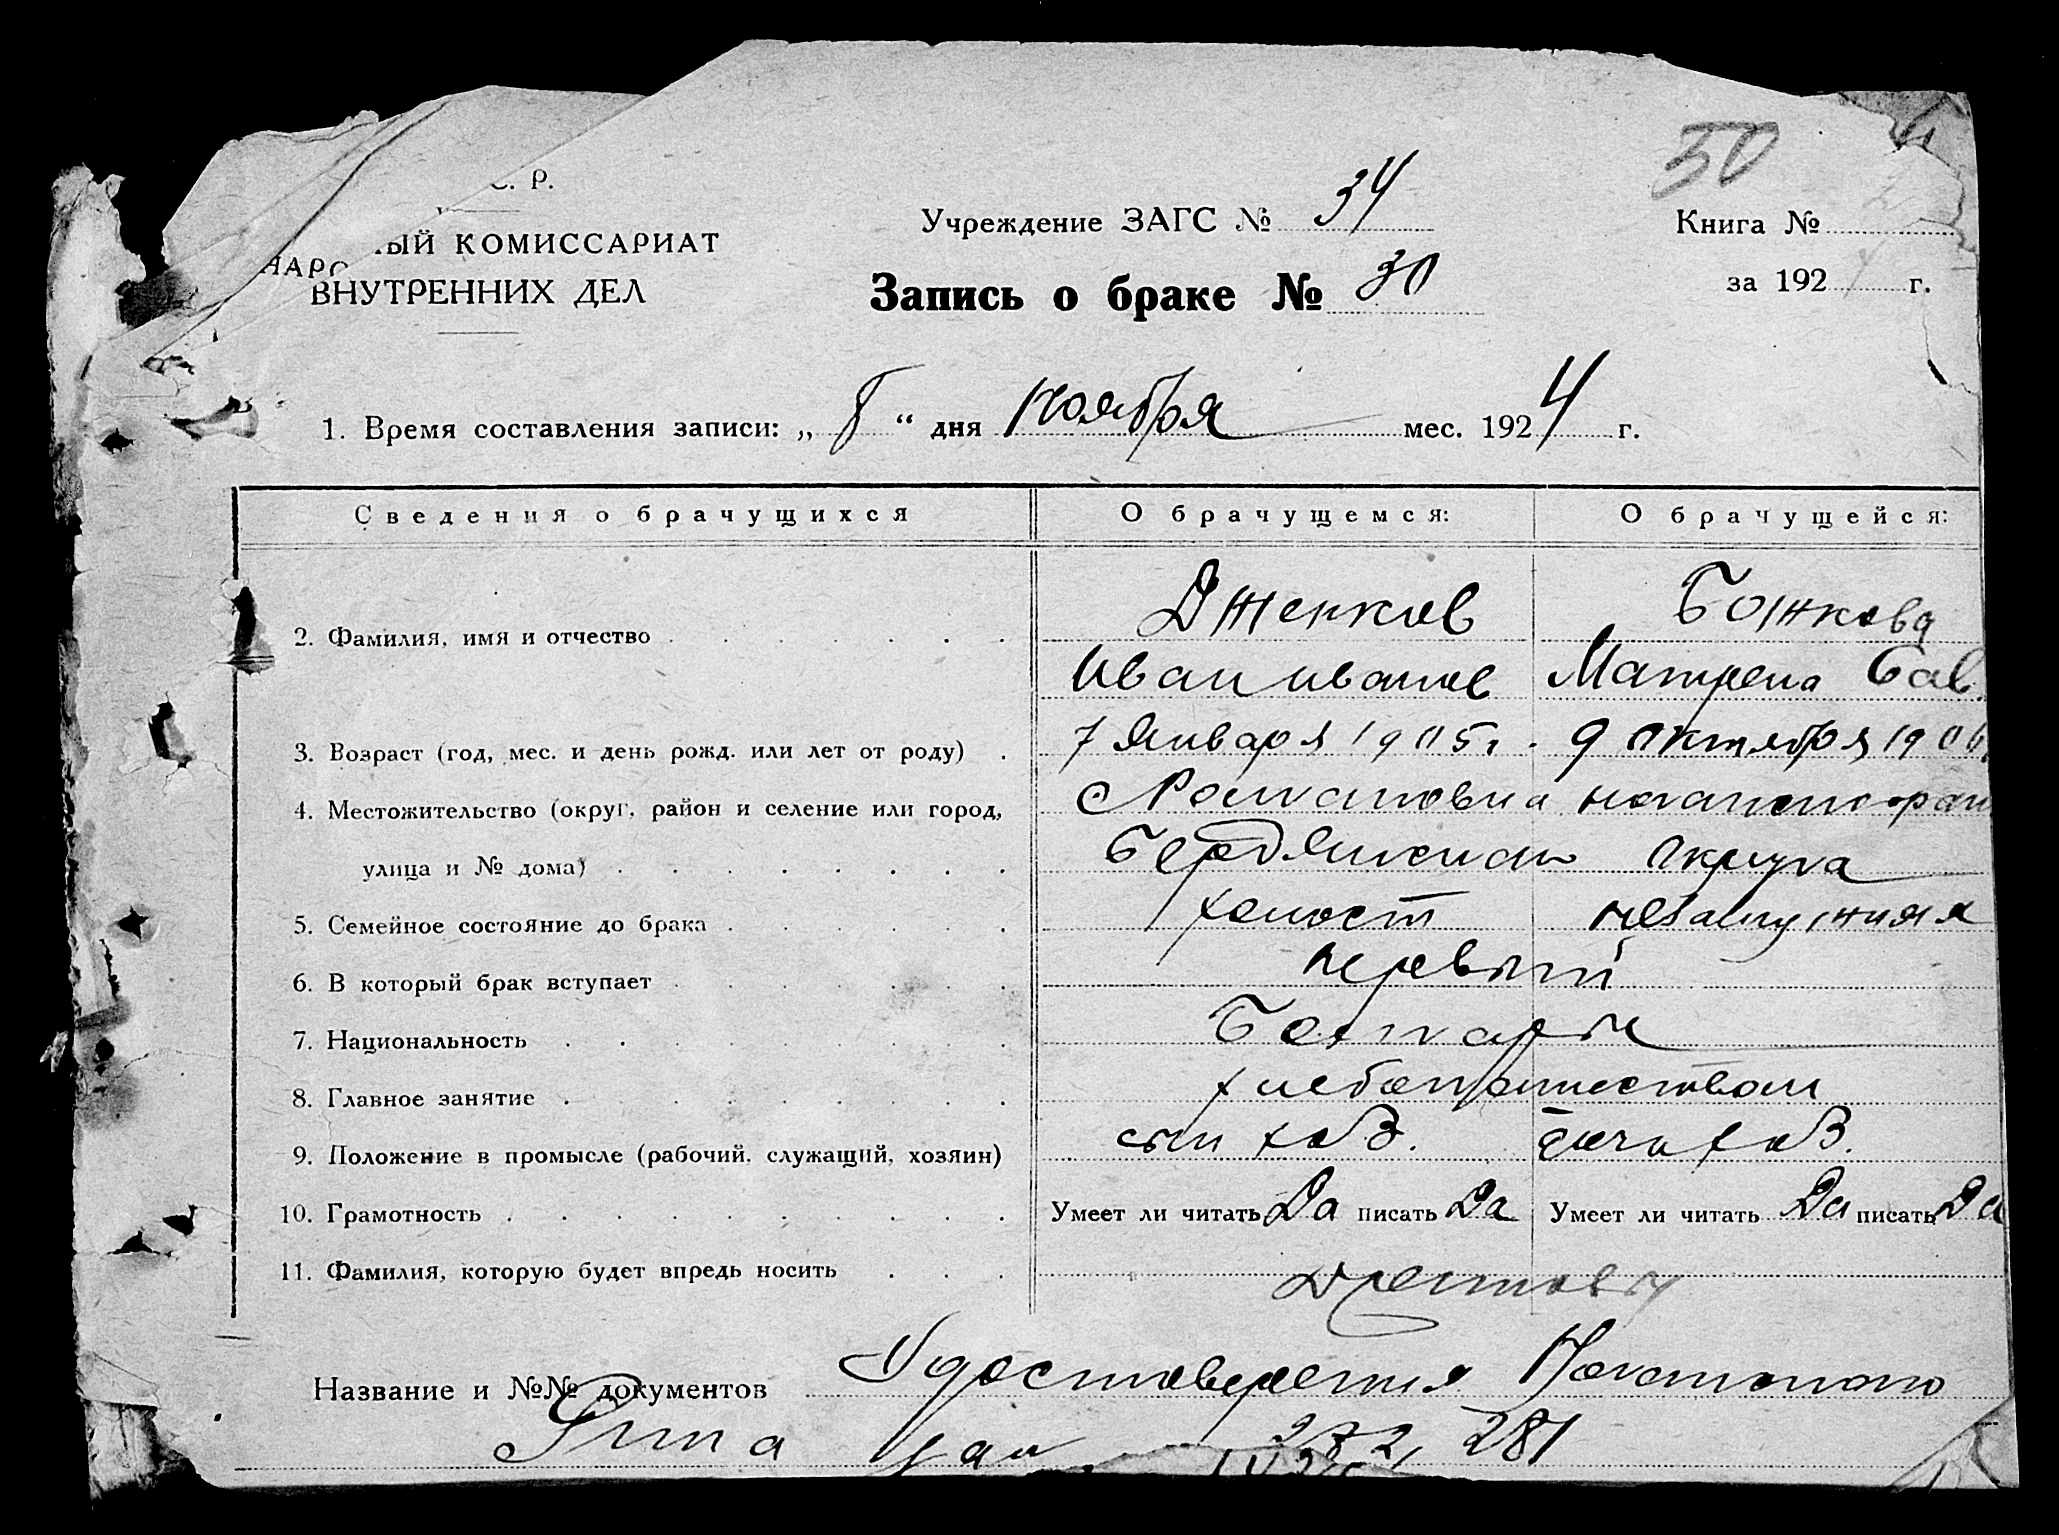 50
С. Р.
НАРО ЫЙ КОМИССАРИАТ
ВНУТРЕННИХ ДЕЛ
Учреждение ЗАГС № 34
Книга №
Запись о браке № 30
за 192 4 г.
1. Время составления записи: „ 8 “ дня Ноября мес. 1924 г.
Сведения о брачущихся О брачущемся: О брачущейся:
2. Фамилия, имя и отчество Дженков Божкова
Иван иванов Матрена Сав.
3. Возраст (год, мес. и день рожд. или лет от роду) 7 Января 1905 г. 9 Октября 1906
4. Местожительство (округ, район и селение или город, с Романовка
улица и № дома) Бердянский округа
5. Семейное состояние до брака холост незамужняя
6. В который брак вступает первый
7. Национальность Болгары
8. Главное занятие хлебопашеством
9. Положение в промысле (рабочий, служащий, хозяин) сын хоз. дочь хоз.
10. Грамотность Умеет ли читать Да писать Да Умеет ли читать Да писать Да
11. Фамилия, которую будет впредь носить
Название и №№ документов Удостоверения
272, 281